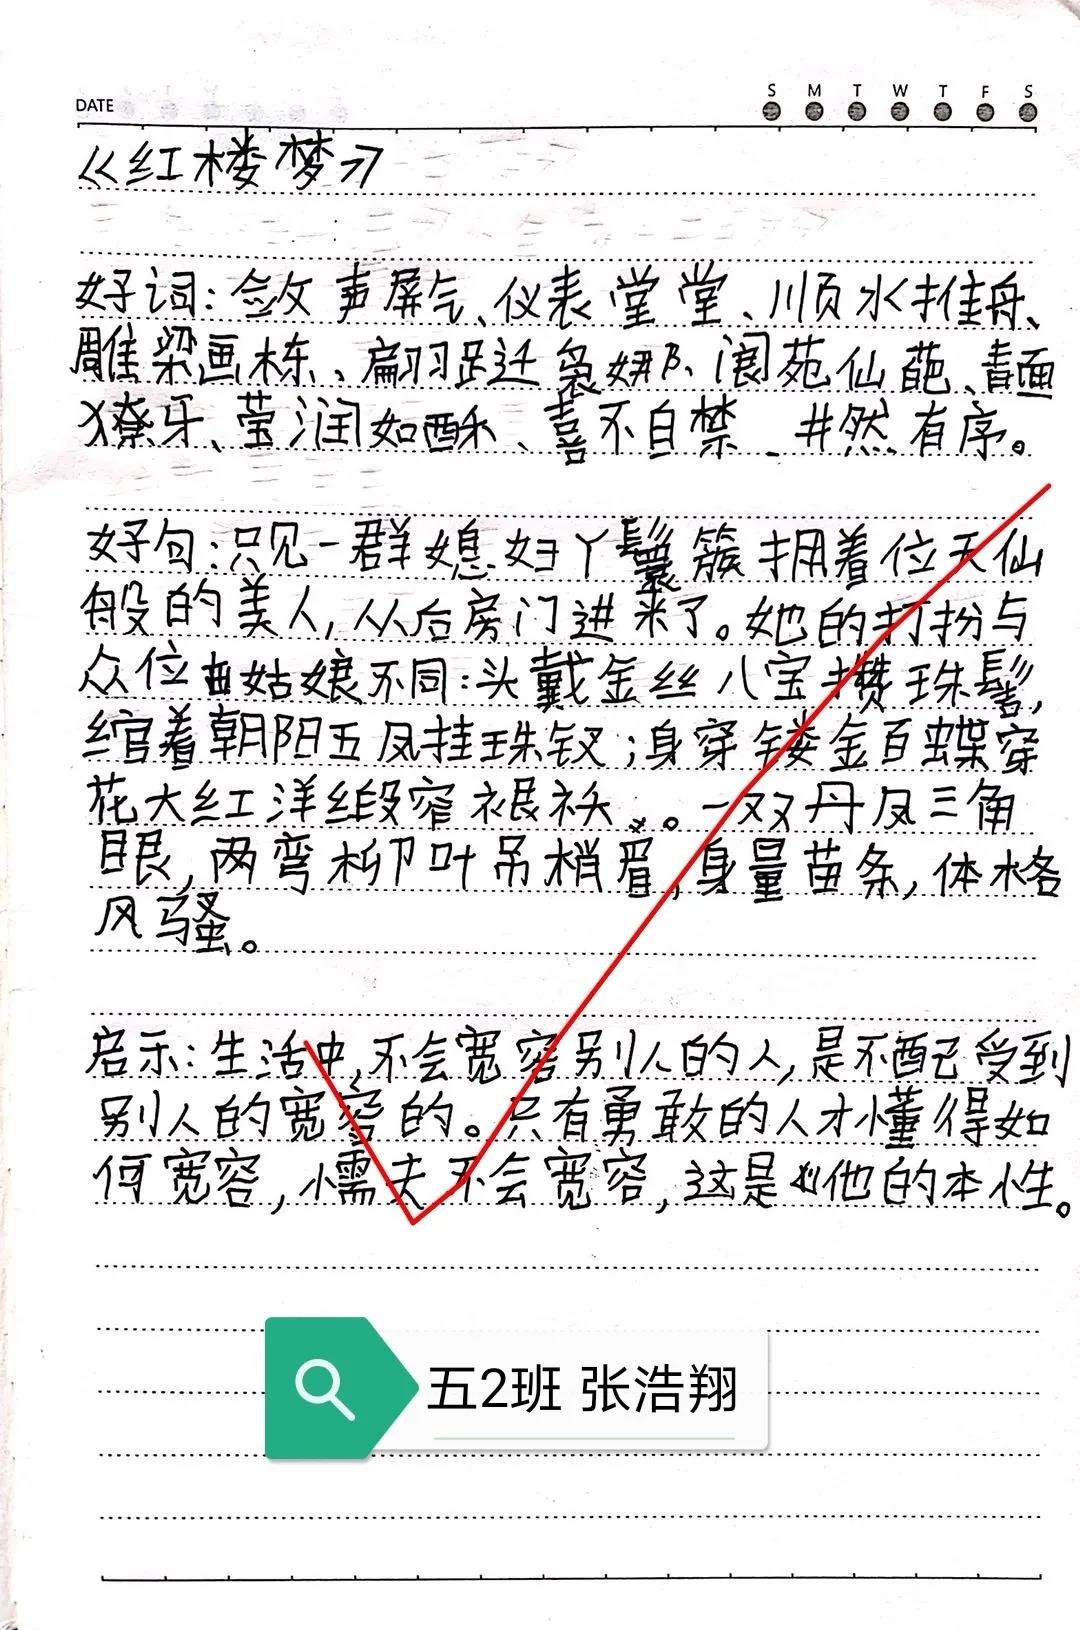 DATE
S M T W T F S
《红楼梦》
好词:敛声屏气、仪表堂堂、顺水推舟、
雕梁画栋、翩跹袅娜、阆苑仙葩、青面
獠牙、莹润如酥、喜不自禁、井然有序。
好句:只见一群媳妇丫鬟簇拥着位天仙
般的美人,从后房门进来了。她的打扮与
众位姑娘不同:头戴金丝八宝攒珠髻,
绾着朝阳五凤挂珠钗;身穿镂金百蝶穿
花大红洋缎窄裉袄。一双丹凤三角
眼,两弯柳叶吊梢眉,身量苗条,体格
风骚。
启示:生活中,不会宽容别人的人,是不配受到
别人的宽容的。只有勇敢的人才懂得如
何宽容,懦夫不会宽容,这是他的本性。
五2班 张浩翔